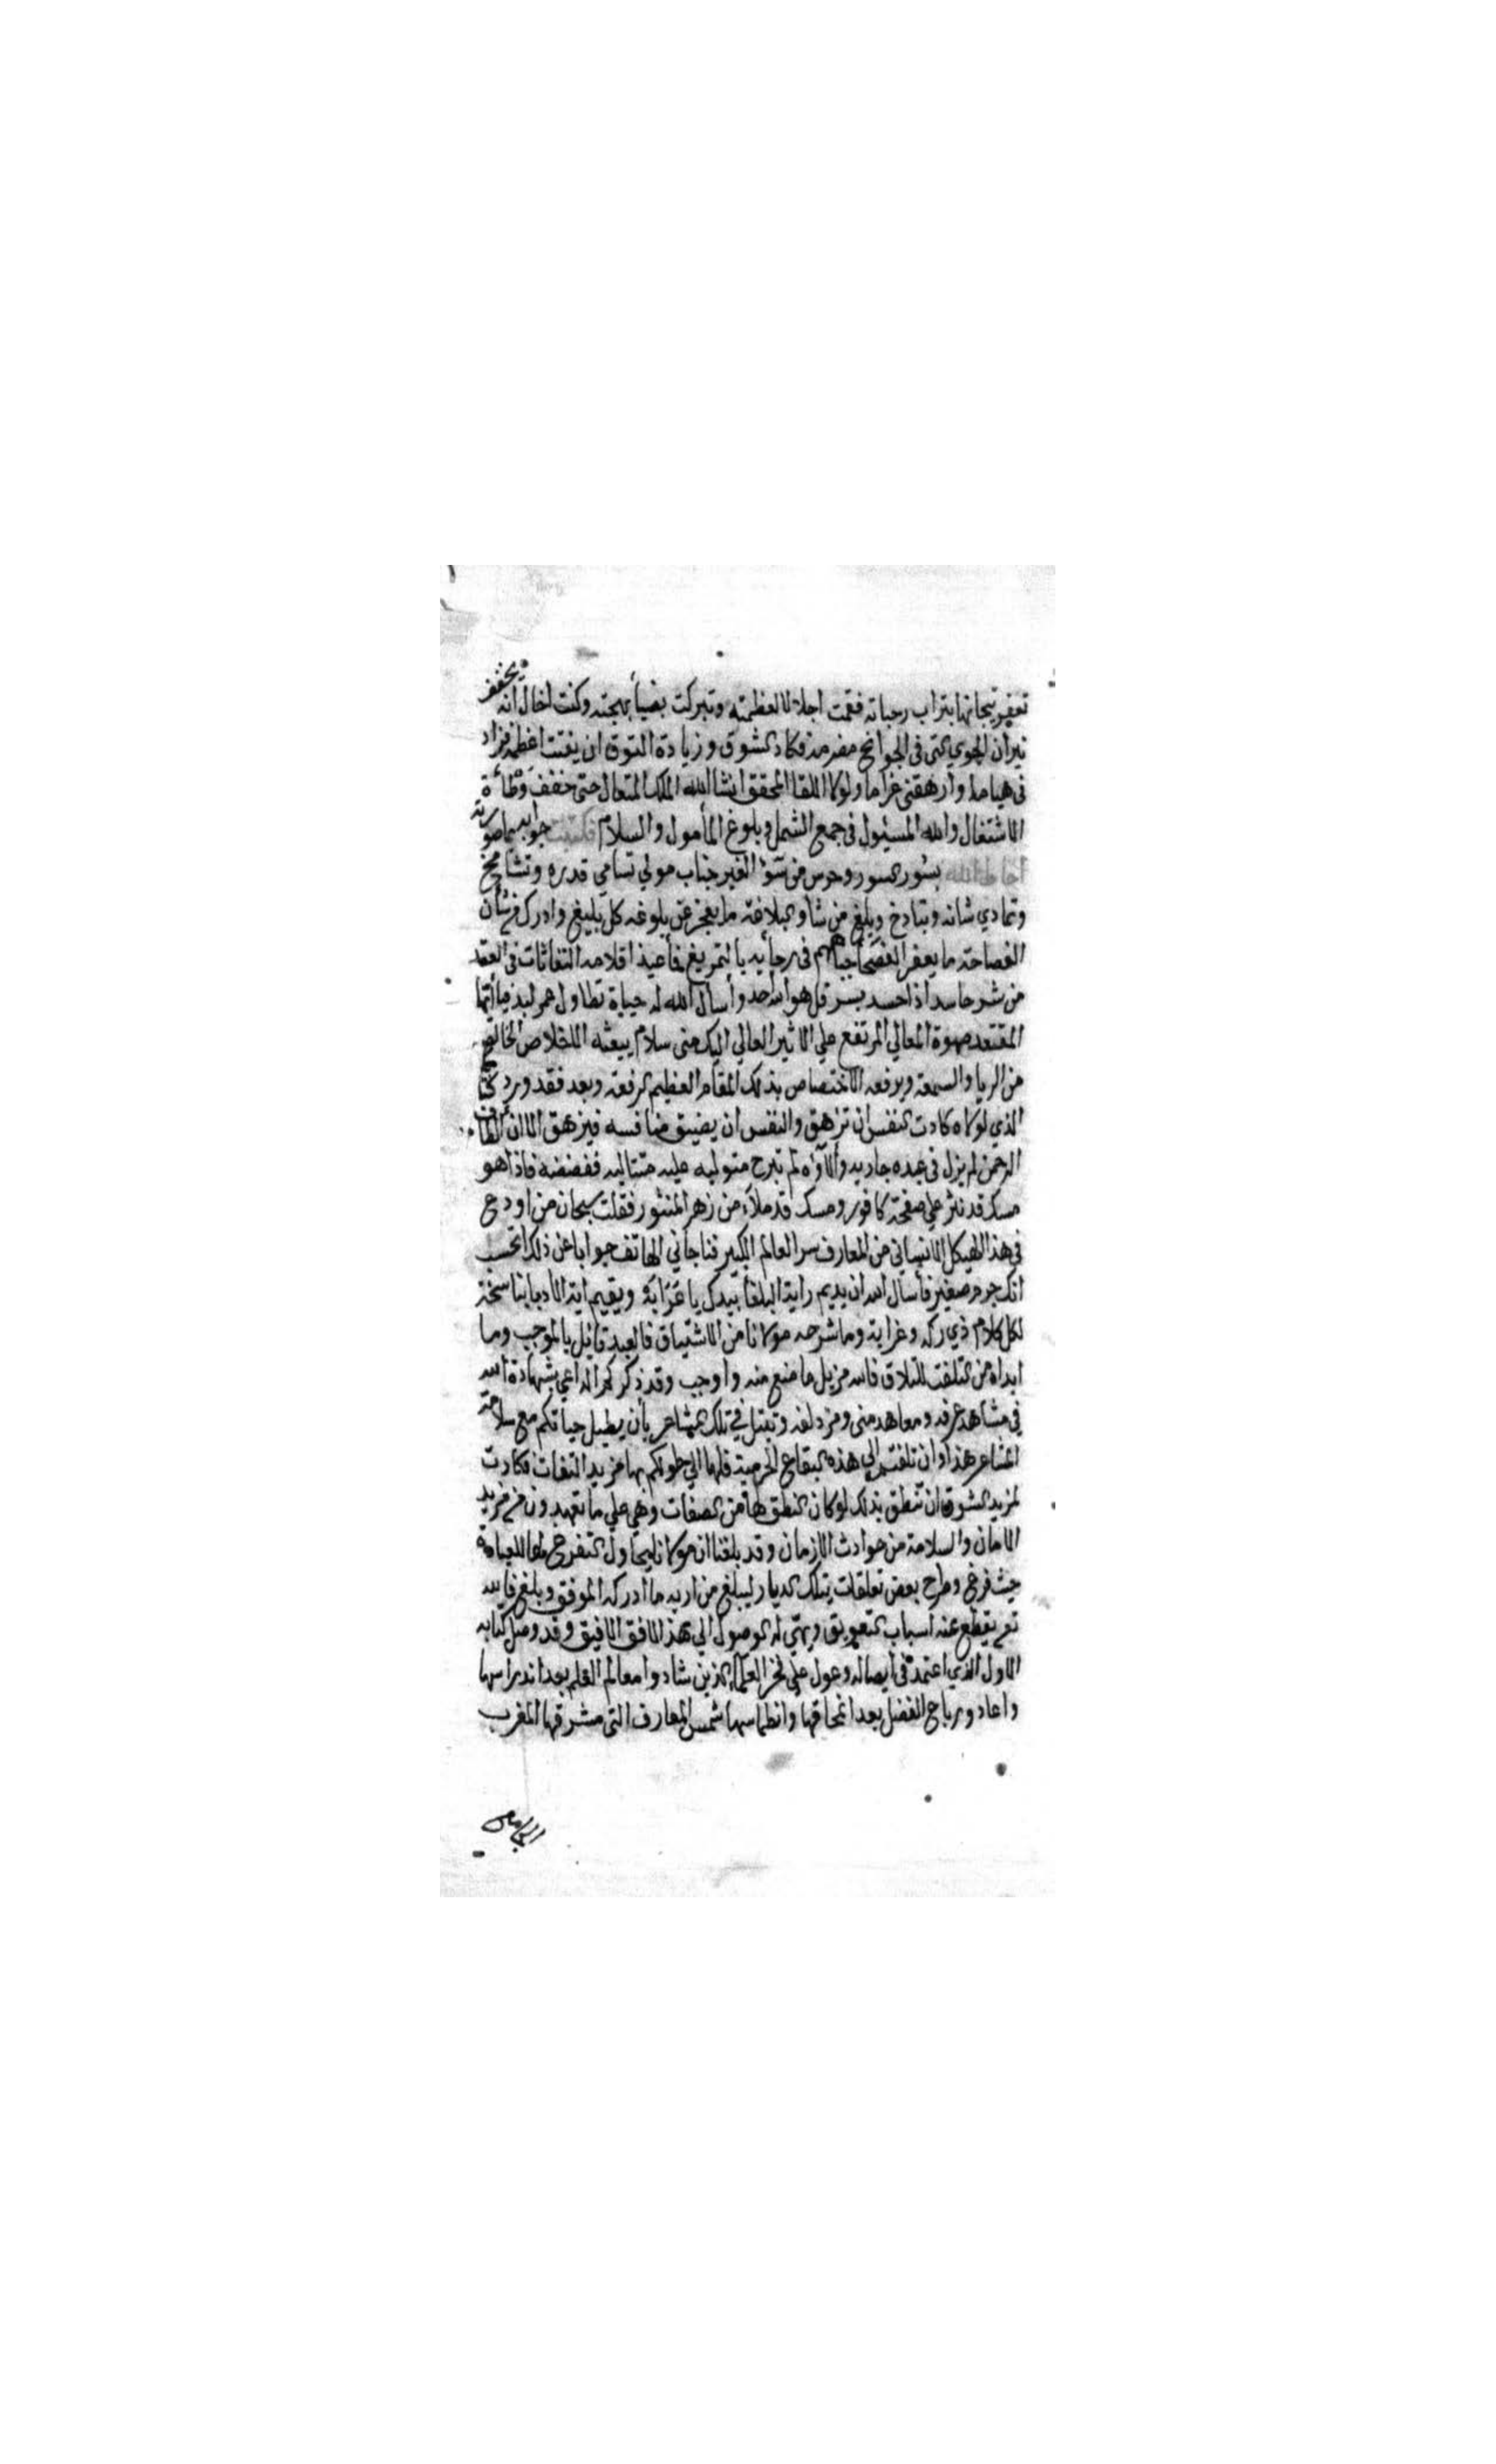 تعفير تيجانها بتراب رحباته فقمت اجلالا لعظمته وتبركت بضيأ بهجته وكنت اخال انه يخفف
نيران الجوي التى فى الجوانح مضرمة فكاد الشوق وزيادة التوق ان يفتت اعظمه فزاد
نى هياما وأرهقنى غراما ولولا اللقا المحقق انشا الله الملك المتعال حتى خفف وطأة
الاشتغال والله المسئول فى جمع الشمل وبلوغ المأمول والسلام فكتبت جوابه بما صورته
احاط الله بسُور السور وحرس من سَوْ الغير جناب مولي تسامي قدره وتشامخ
وتمادي شانه وتبادخ وبلغ من شاو البلاغة ما يعجز عن بلوغه كل بليغ وادرك من شأن
الفصاحة ما يعفر الفصحأ جباههم فى رجأيه بالتمريغ فأعيذ اقلامه النفاثات فى العقد
من شر حاسد اذا حسد بسر قل هو الله أحد وأسأل الله له حياة تطاول عمر لبد
المقتعد صهوة المعالي المرتفع علي الاثير العالي اليك منى سلام يبعثه الاخلاص الخالص
من الريا والسمعة ويرفعه الاختصاص بذلك المقام العظيم الرفعة وبعد فقد ورد
الذي لولاه كادت النفس ان تزهق والنفس ان يضيق منافسه فيزهق الا ان الطاف
الرحمن لم يزل فى عبده جاديه وألآؤه لم تبرح متوليه عليه متتاليه ففضضه فاذا هو
مسك قد نثر علي صفحة كافور ومسك قد ملأ من زهر المنثور فقلت سبحان من اودع
فى هذا الهيكل الانسانى من المعارف سر العالم الكبير فناجأني الهاتف جوابا عن ذلك اتحسب
انك جرم صغير فأسأل الله ان يديم راية البلغأ بيدك يا عَرَابَة ويقيم اية الادبا بنا سخة
لكل كلام ذي ركه وغرابة وما شرحه مولانا من الاشتياق فالعبد قايل بالموجب وما
ابداه من التلفت للتلاق فالله مزيل ما منع منه واوجب وقد ذكركم الداعي بشهادة الله
فى مشاهد عرفه ومعاهد منى ومزدلفه وتبتل في تلك المشاعر بأن يطيل حياتكم مع سلامة
المشاعر هذا وان تلفتم الي هذه البقاع الحرمية فلها الي طولكم بها مزيد التفات فكادت
لمزيد الشوق ان تنطق بذلك لو كان النطق لها من الصفات وهي علي ما تعهدون من مزيد
الامان والسلامة من حوادث الازمان وقد بلغنا ان مولانا يحاول التفرغ لها للعبادة
حيث فرغ وطرح بعض تعلقات بتلك الديار ليبلغ من اربه ما أدركه الموفق وبلغ فالله
تع يقطع عنه أسباب التعويق ويهيي له الوصول الي هذا الافق الافيق وقد وصل كتابه
الاول الذي اعتمد في ايصاله وعول علي فخر العلمأ الذين شادوا معالم العلم بعد اندراسها
واعادو رباع الفضل بعد انمحاقها وانطماسها شمس المعارف التى مشرقها المغرب